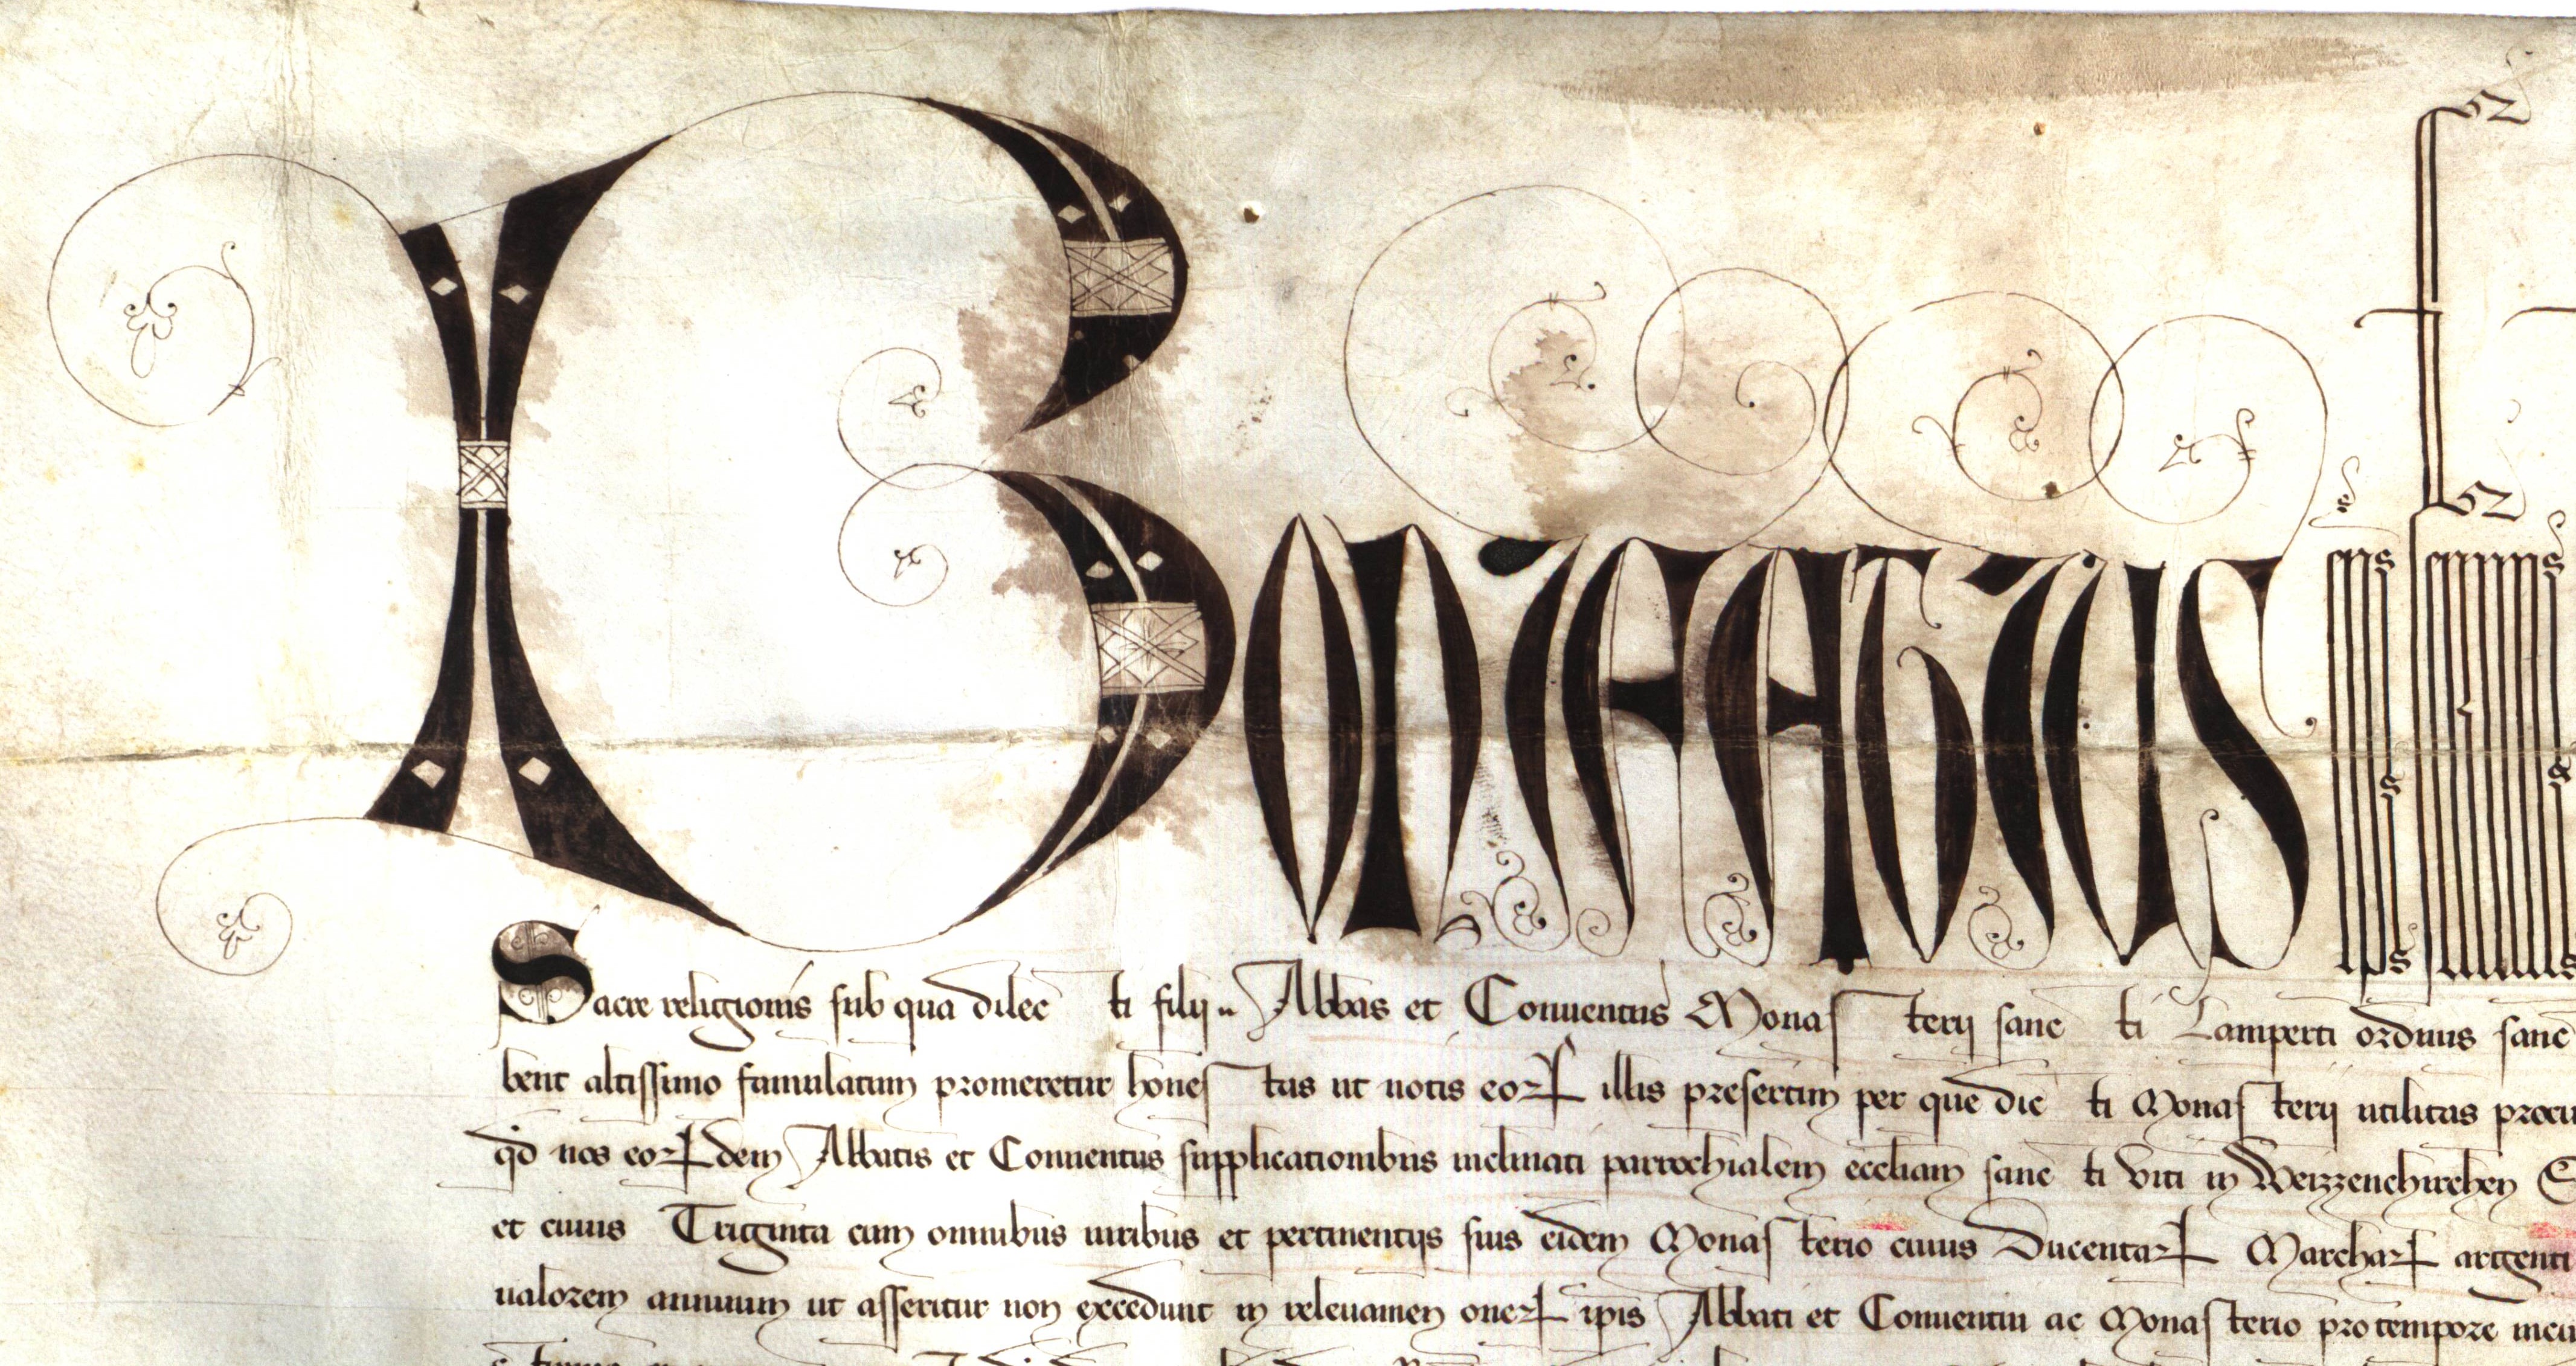 Bonifatius eps seruus
Sacre religionis sub qua dilecti filij .. Abbas et Conuentus Monasterij sancti Lamperti ordinis sanc
bent altissimo famulatum promeretur honestas ut uotis eoꝝ illis presertim per que dicti Monasterij utilitas procu
qd nos eoꝝdem Abbatis et Conuentus supplicationibus inclinati parrochialem eccliam sancti Viti in Weizzenchirchen
et cuius Triginta cum omnibus iuribus et pertinentijs suis eidem Monasterio cuius Ducentaꝝ Marchaꝝ argenti
ualorem annuum ut asseritur non excedunt in releuamen oneꝝ ipis Abbati et Conuentui ac Monasterio pro tempore incu